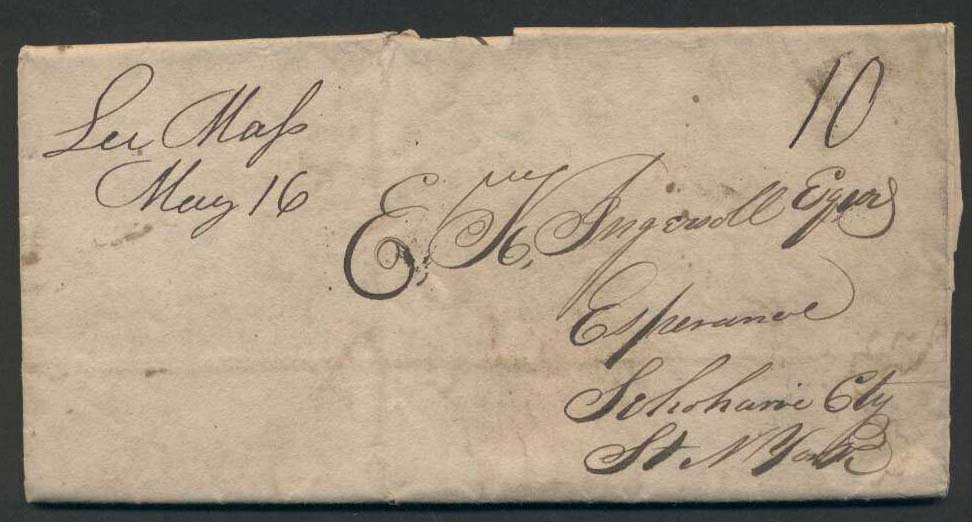 Lee Mass
May 16
10
E. K. Ingersoll Esqur
Esperance
Schoharie Cty
St N York